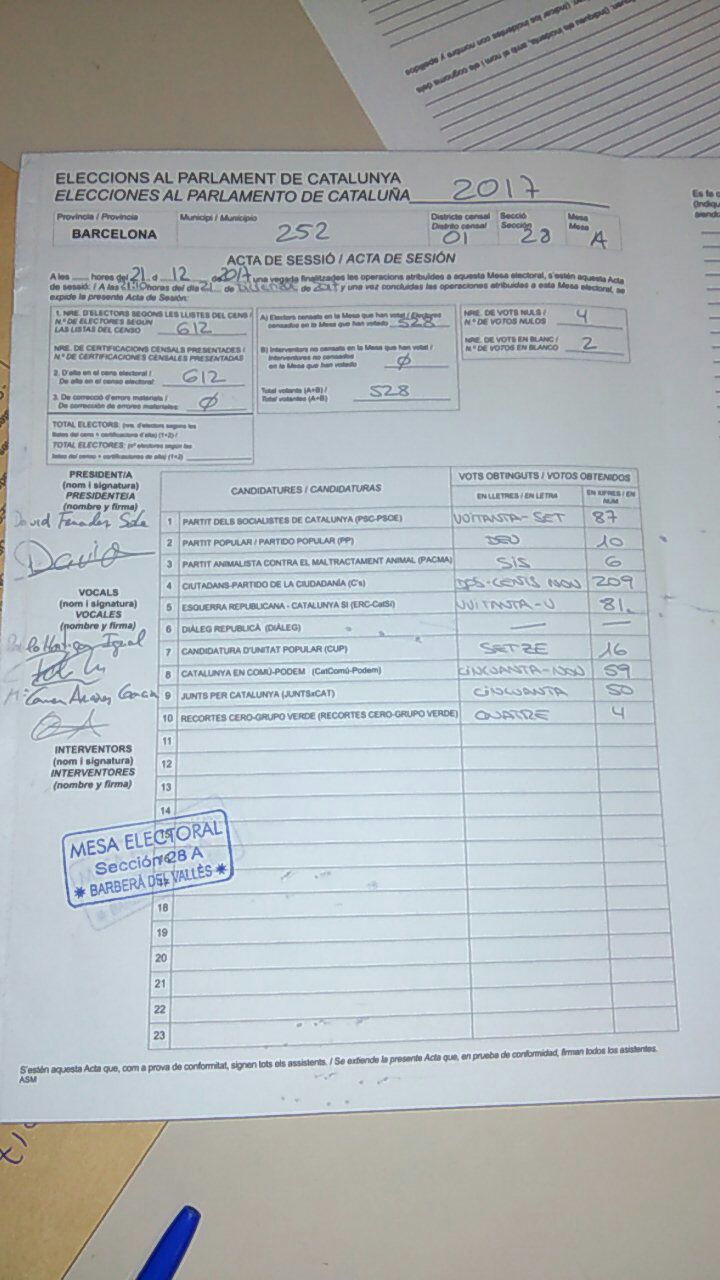 (Indicar los incidentes con nombre y apellidos
ELECCIONS AL PARLAMENT DE CATALUNYA
ELECCIONES AL PARLAMENTO DE CATALUÑA 2017
Província / Provincia
BARCELONA
Municipi / Municipio
252
Districte censal
Distrito censal
01
Secció
Sección
28
Mesa
Mesa
A
ACTA DE SESSIÓ / ACTA DE SESIÓN
A les hores del 21 d 12 de 2017 una vegada finalitzades les operacions atribuïdes a aquesta Mesa electoral, s'estén aquesta Acta
de sessió: / A las horas del día 21 de de 2017 y una vez concluidas las operaciones atribuidas a esta Mesa electoral, se
expide la presente Acta de Sesión:
1. NRE. D'ELECTORS SEGONS LES LLISTES DEL CENS /
N.º DE ELECTORES SEGÚN
LAS LISTAS DEL CENSO 612
NRE. DE CERTIFICACIONS CENSALS PRESENTADES /
N.º DE CERTIFICACIONES CENSALES PRESENTADAS
2. D'alta en el cens electoral /
De alta en el censo electoral: 612
3. De correcció d'errors materials /
De corrección de errores materiales: Ø
TOTAL ELECTORS: (nre. d'electors segons les
llistes del cens + certificacions d'alta) (1+2) /
TOTAL ELECTORES: (nº electores según las
listas del censo + certificaciones de alta) (1+2)
A) Electors censats en la Mesa que han votat / Electores
censados en la Mesa que han votado 528
B) Interventors no censats en la Mesa que han votat /
Interventores no censados
en la Mesa que han votado Ø
Total votants (A+B) /
Total votantes (A+B) 528
NRE. DE VOTS NULS /
N.º DE VOTOS NULOS 4
NRE. DE VOTS EN BLANC /
N.º DE VOTOS EN BLANCO 2
PRESIDENT/A
(nom i signatura)
PRESIDENTE/A
(nombre y firma)
David
David
VOCALS
(nom i signatura)
VOCALES
(nombre y firma)
Igual
INTERVENTORS
(nom i signatura)
INTERVENTORES
(nombre y firma)
CANDIDATURES / CANDIDATURAS
VOTS OBTINGUTS / VOTOS OBTENIDOS
EN LLETRES / EN LETRA
EN XIFRES / EN NUM
1 PARTIT DELS SOCIALISTES DE CATALUNYA (PSC-PSOE) VUITANTA-SET 87
2 PARTIT POPULAR / PARTIDO POPULAR (PP) DEU 10
3 PARTIT ANIMALISTA CONTRA EL MALTRACTAMENT ANIMAL (PACMA) SIS 6
4 CIUTADANS-PARTIDO DE LA CIUDADANÍA (C's) DOS-CENTS NOU 209
5 ESQUERRA REPUBLICANA - CATALUNYA SI (ERC-CatSí) VUITANTA-U 81
6 DIÀLEG REPUBLICÀ (DIÀLEG) — —
7 CANDIDATURA D'UNITAT POPULAR (CUP) SETZE 16
8 CATALUNYA EN COMÚ-PODEM (CatComú-Podem) CINCUANTA-NOU 59
9 JUNTS PER CATALUNYA (JUNTSxCAT) CINCUANTA 50
10 RECORTES CERO-GRUPO VERDE (RECORTES CERO-GRUPO VERDE) QUATRE 4
11
12
13
14
15
MESA ELECTORAL
Sección 28 A
BARBERÀ DEL VALLÈS
18
19
20
21
22
23
S'estén aquesta Acta que, com a prova de conformitat, signen tots els assistents. / Se extiende la presente Acta que, en prueba de conformidad, firman todos los asistentes.
ASM